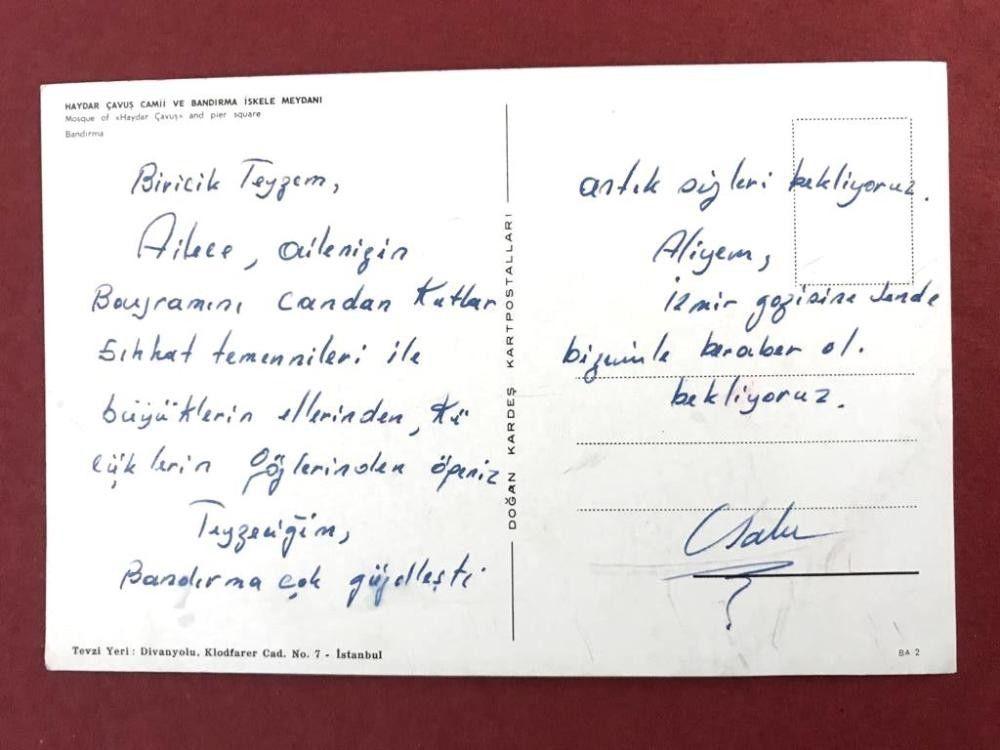 HAYDAR ÇAVUŞ CAMİİ VE BANDIRMA İSKELE MEYDANI
Mosque of «Haydar Çavuş» and pier square
Bandırma
Biricik Teyzem,
Ailece, ailenizin
Bayramını candan kutlar
Sıhhat temennileri ile
büyüklerin ellerinden, kü
çüklerin gözlerinden öperiz
Teyzeciğim,
Bandırma çok güzelleşti
DOĞAN KARDEŞ KARTPOSTALLARI
artık sizleri bekliyoruz.
Aliyem,
İzmir gezisine sende
bizimle beraber ol.
bekliyoruz.
Tevzi Yeri : Divanyolu, Klodfarer Cad. No. 7 - İstanbul
BA 2